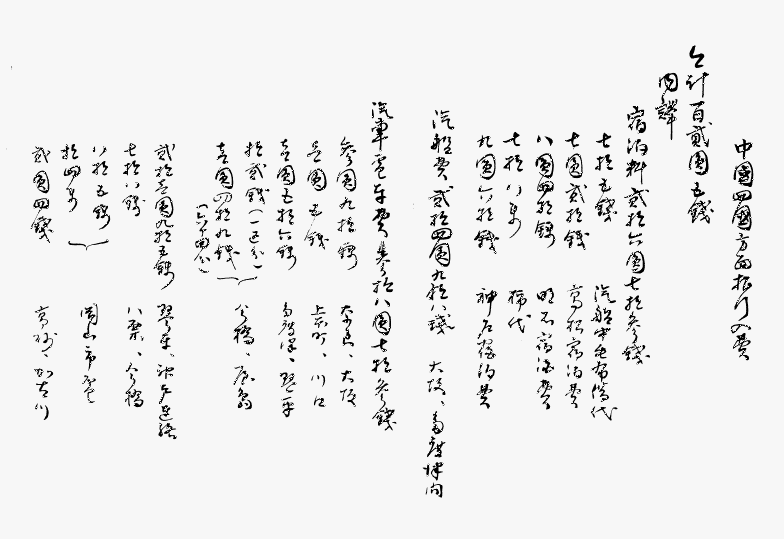 中國四國方面旅行入費
合計百貳圓五錢
内譯
宿泊料貳拾六圓七拾參錢
七拾五錢 汽船中毛布代
七圓貳拾錢 高松宿泊費
八圓四拾錢 明石宿泊費
七拾八錢
九圓六拾錢 神戸宿泊費
汽船費貳拾四圓九拾八錢 大阪、多度津間
汽車電車費參拾八圓七拾參錢
參圓九拾錢 奈良、大阪
壱圓五錢 川口
壱圓五拾六錢 多度津、琴平
拾貳錢
壱圓四拾九錢
貳拾壱圓九拾五錢
七拾八錢 八栗、今橋
八拾五錢
拾四錢 岡山市電
貳圓四錢 高砂、加古川